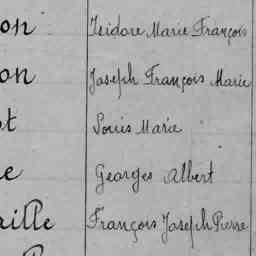 on Isidore Marie François
on Joseph François Marie
t Louis Marie
e Georges Albert
aille François Joseph Pierre